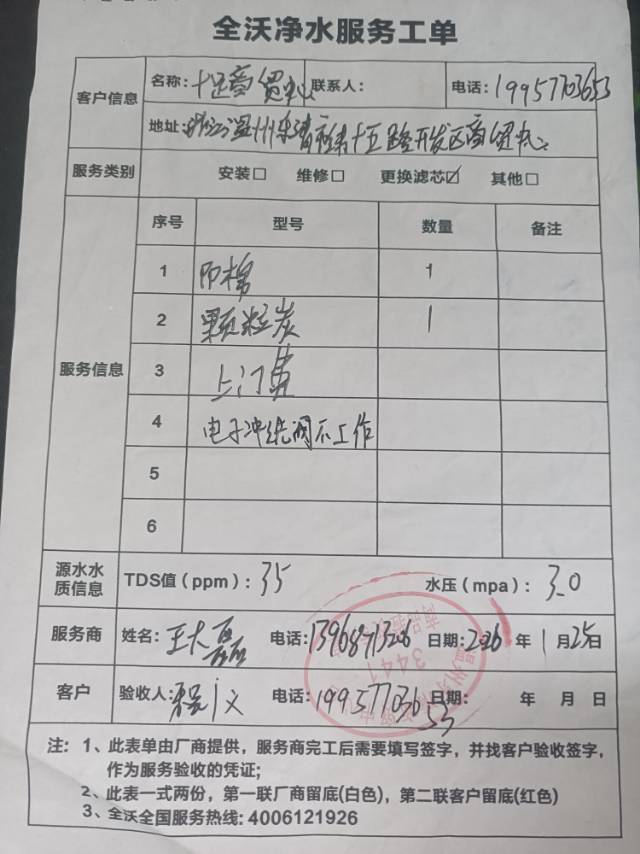 全沃净水服务工单
客户信息
名称：十足商贸中心 联系人： 电话：19957703653
地址：浙江温州乐清市纬十五路开发区商贸中心
服务类别 安装□ 维修□ 更换滤芯☑ 其他□
服务信息
序号 型号 数量 备注
1 PP棉 1
2 颗粒炭 1
3 上门费
4 电子冲洗阀不工作
5
6
源水水质信息 TDS值（ppm）：35 水压（mpa）：3.0
服务商 姓名：王大磊 电话：13968713206 日期：2026 年 1 月 25 日
3441
客户 验收人： 电话：19957703653 日期： 年 月 日
注：1、此表单由厂商提供，服务商完工后需要填写签字，并找客户验收签字，
作为服务验收的凭证;
2、此表一式两份，第一联厂商留底(白色)，第二联客户留底(红色)
3、全沃全国服务热线: 4006121926